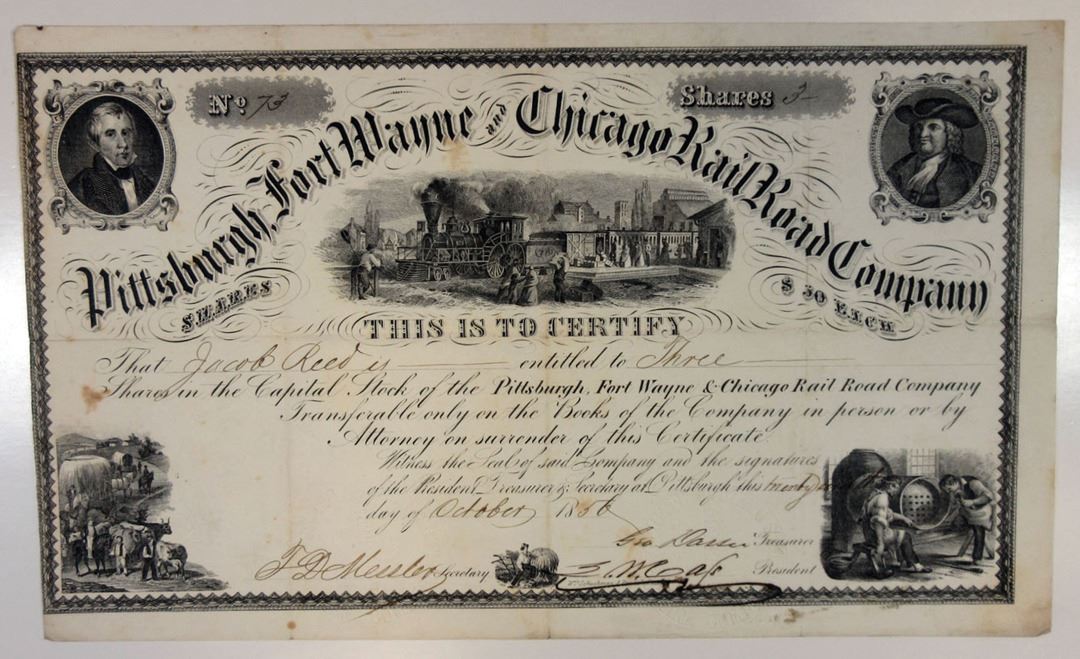 No 73
Shares 3
Pittsburgh, Fort Wayne and Chicago Rail Road Company
SHARES $50 EACH
THIS IS TO CERTIFY
That Jacob Reed is entitled to Three
Shares in the Capital Stock of the Pittsburgh, Fort Wayne & Chicago Rail Road Company
Transferable only on the Books of the Company in person or by
Attorney on surrender of this Certificate
Witness the Seal of said Company and the signatures
of the President Treasurer & Secretary at Pittsburgh this
day of October 1856
Treasurer
T D Messler Secretary
President